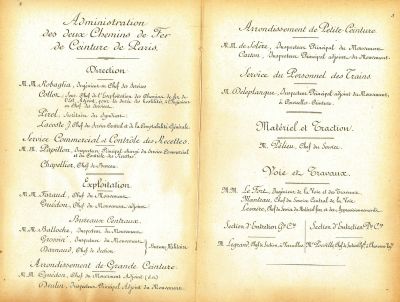 Administration
des deux Chemins de Fer
de Ceinture de Paris.
Direction
M.M. Robaglia, Ingénieur en Chef des Services
Collot, Sous-Chef de l'Exploitation des Chemins de fer de
Pirel, Secrétaire du Syndicat
Lacoste J. Chef du Service Central et de la Comptabilité Générale.
Service Commercial et Contrôle des Recettes.
M.M. Papillon, Inspecteur Principal chargé du Service Commercial
et du Contrôle des Recettes.
Chapellier, Chef de Bureau
Exploitation
M.M. Faraud, Chef du Mouvement
Guédon, Chef du Mouvement adjoint
Bureaux Centraux.
M.M. Balloche, Inspecteur du Mouvement
Grossin, Inspecteur du Mouvement
Barnaud, Chef de Section
Bureau Militaire
Arrondissement de Grande Ceinture.
M.M. Guédon, Chef du Mouvement Adjoint
Brulat, Inspecteur Principal Adjoint du Mouvement.
Arrondissement de Petite Ceinture.
M.M. de Solère, Inspecteur Principal du Mouvement
Carton, Inspecteur Principal adjoint du Mouvement.
Service du Personnel des Trains.
M. Deleplangue, Inspecteur Principal adjoint du Mouvement
à Courcelles-Ceinture.
Matériel et Traction.
M. Pélieu, Chef du Service.
Voie et Travaux.
M.M. Le Fort, Ingénieur de la Voie et des Travaux.
Manteau, Chef du Service Central de la Voie
Lemière, Chef du Service du Matériel fixe et des Approvisionnements.
Section d'Entretien Gde Cre
Section d'Entretien Pte Cre
M. Legrand, Chef de Section, à Versailles